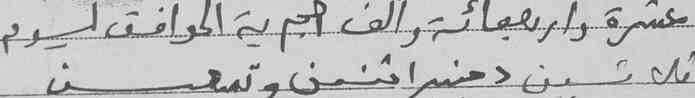 عشرة واربعمائة والف هجرية الموافق ليوم
ثلاثين دجنبر اثنين وتسعين